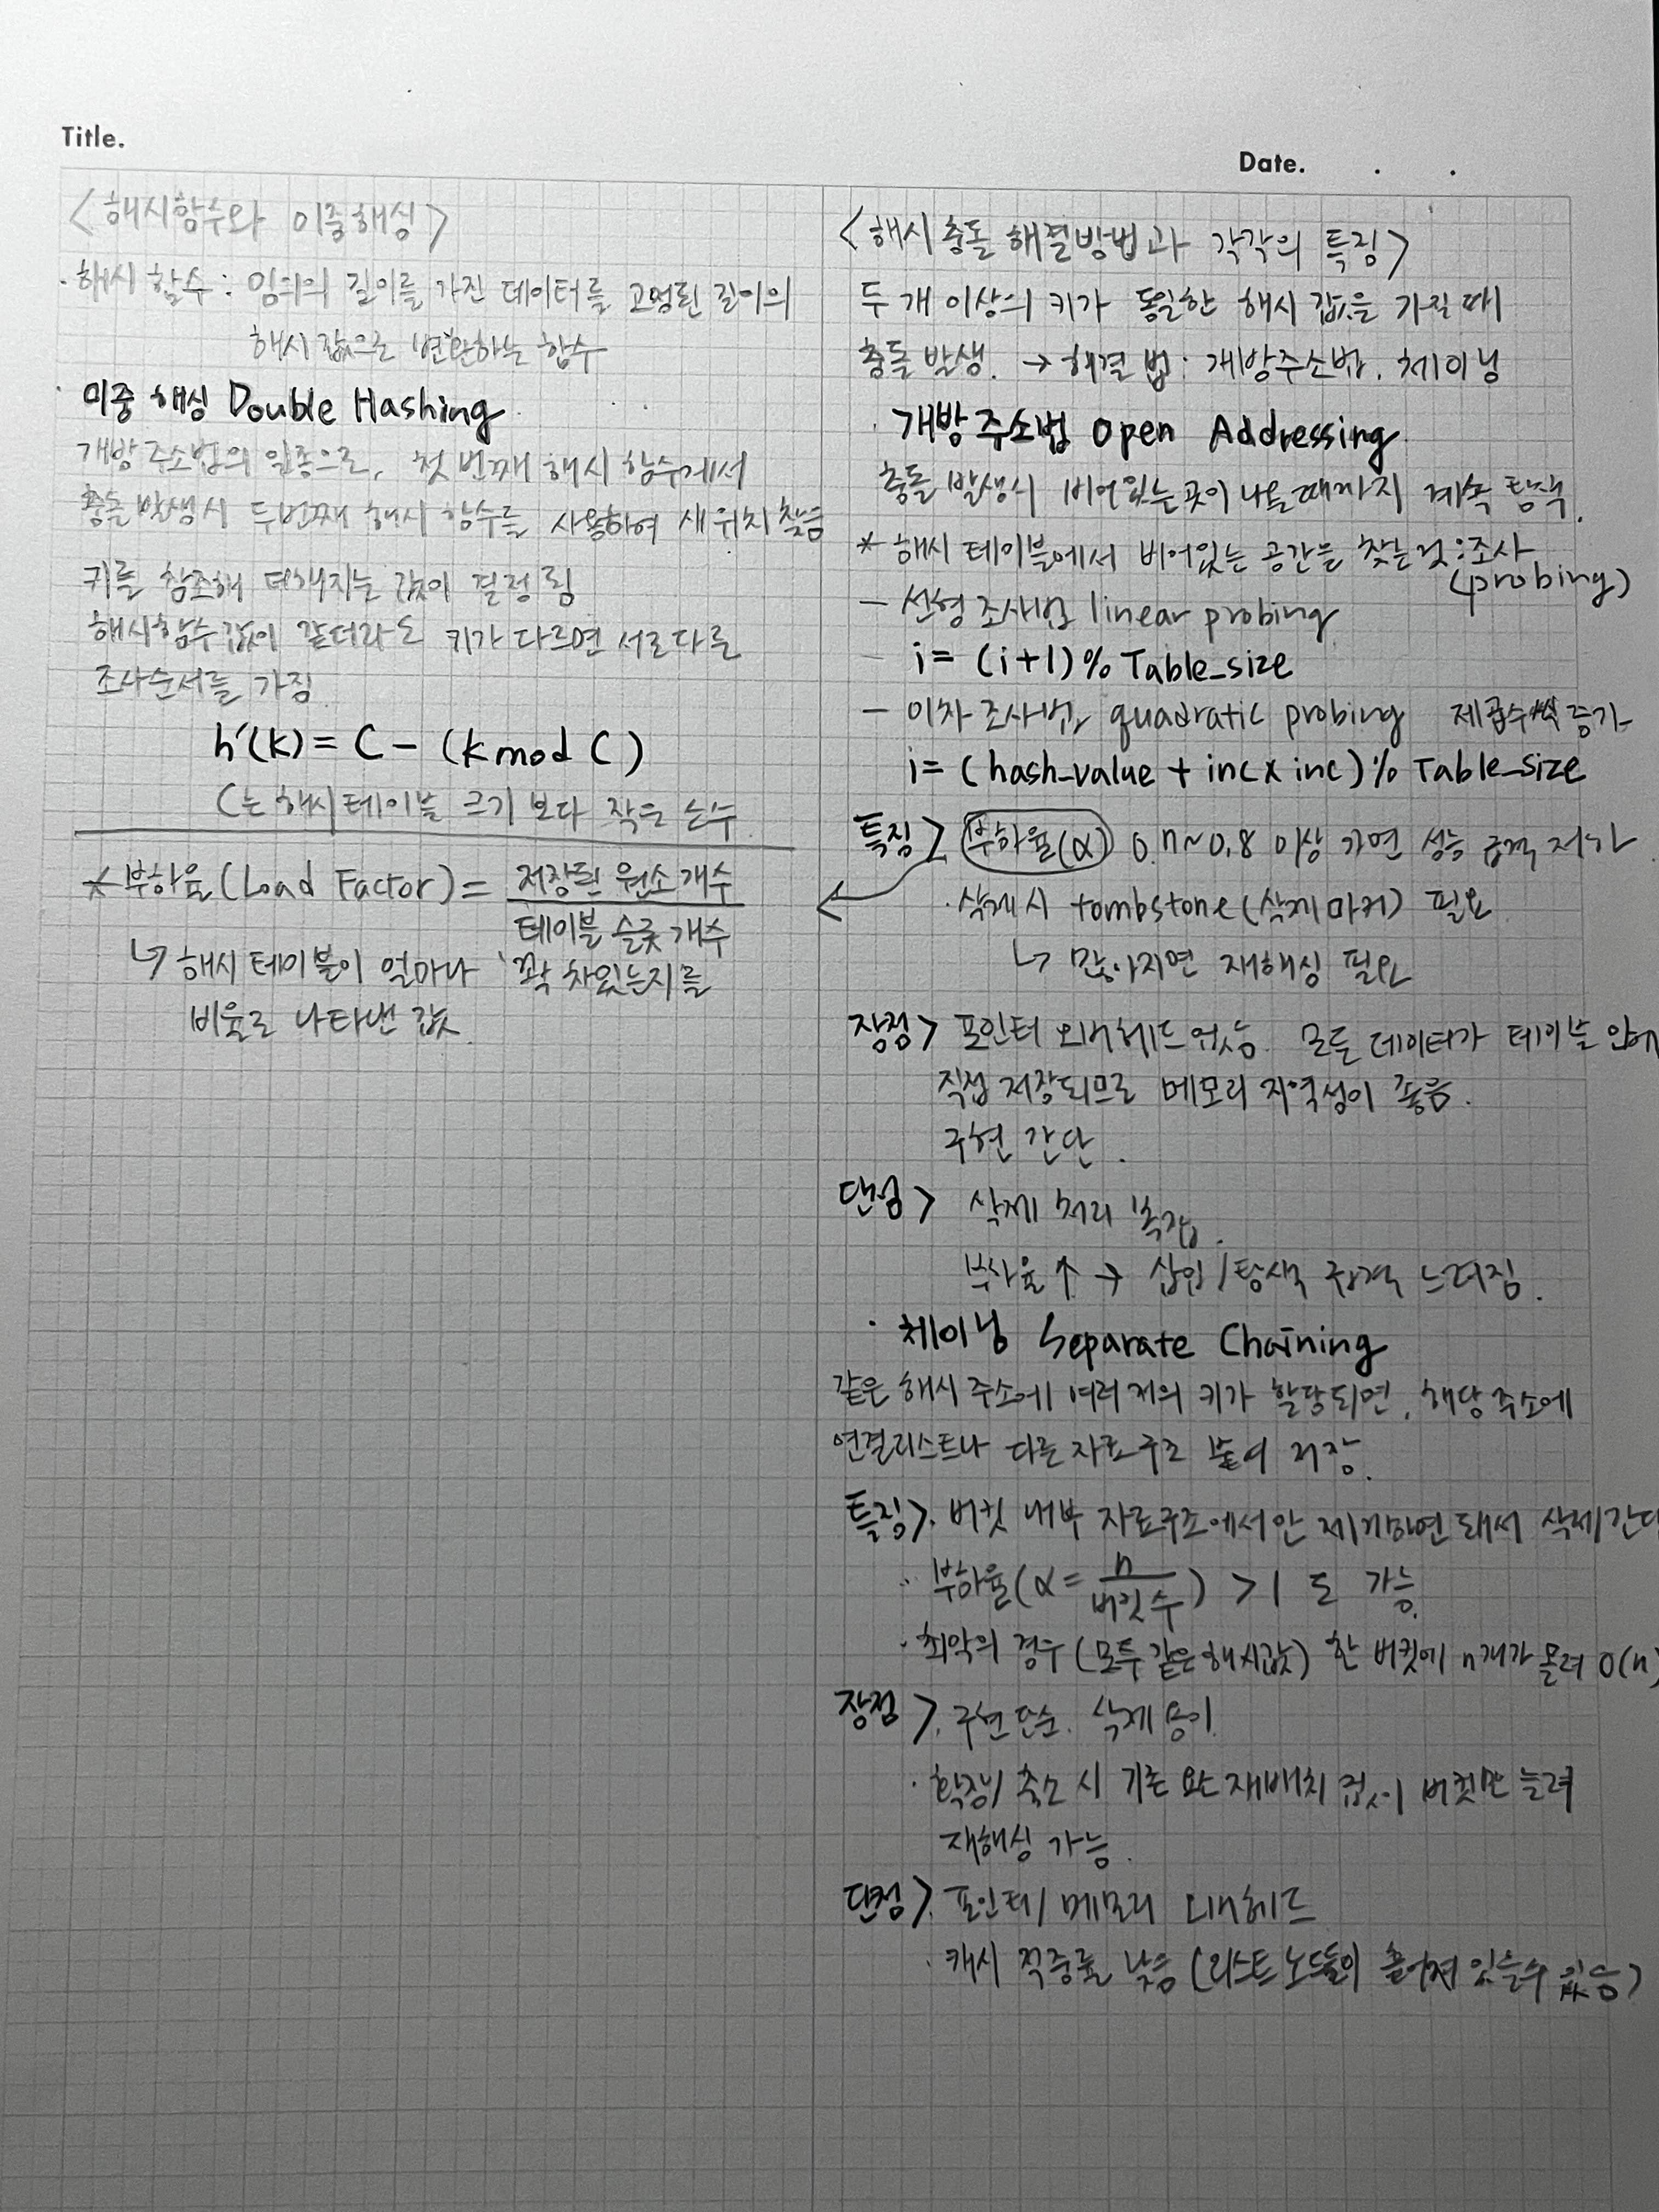 Title.
Date. . .
<해시함수와 이중해싱>
· 해시 함수 : 임의의 길이를 가진 데이터를 고정된 길이의
해시 값으로 변환하는 함수
· 이중 해싱 Double Hashing
개방 주소법의 일종으로, 첫 번째 해시 함수에서
충돌 발생시 두번째 해시 함수를 사용하여 새 위치 찾음
키를 참조해 더해지는 값이 결정됨
해시함수 값이 같더라도 키가 다르면 서로 다른
조사순서를 가짐
h'(k) = C - (k mod C)
C는 해시테이블 크기 보다 작은 소수
* 부하율 (Load Factor) = 저장된 원소 개수
테이블 슬롯 개수
↳ 해시 테이블이 얼마나 꽉 차있는지를
비율로 나타낸 값
<해시 충돌 해결방법과 각각의 특징>
두 개 이상의 키가 동일한 해시 값을 가질 때
충돌 발생. → 해결법 : 개방주소법, 체이닝
· 개방 주소법 Open Addressing
충돌 발생시 비어있는 곳이 나올때까지 계속 탐색.
* 해시 테이블에서 비어있는 공간을 찾는것 : 조사
(probing)
- 선형 조사법 linear probing
- i = (i+1) % Table_size
- 이차 조사법 quadratic probing 제곱수씩 증가
i = (hash_value + inc x inc) % Table_size
특징> 부하율(α) 0.7~0.8 이상 가면 성능 급격 저하
· 삭제시 tombstone(삭제마커) 필요
↳ 많아지면 재해싱 필요
장점> 포인터 오버헤드 없음. 모든 데이터가 테이블 안에
직접 저장되므로 메모리 지역성이 좋음.
구현 간단.
단점> 삭제 처리 복잡.
부하율↑ → 삽입/탐색 급격 느려짐.
· 체이닝 Separate Chaining
같은 해시 주소에 여러 개의 키가 할당되면, 해당 주소에
연결리스트나 다른 자료구조 붙여 저장.
특징>· 버킷 내부 자료구조에서만 제거하면 돼서 삭제 간단
· 부하율(α = n
버킷 수) > 1 도 가능.
· 최악의 경우 (모두 같은 해시값) 한 버킷에 n개가 몰려 O(n)
장점>· 구현 단순. 삭제 용이.
· 확장/축소 시 기존 요소 재배치 없이 버킷만 늘려
재해싱 가능.
단점>· 포인터/메모리 오버헤드
· 캐시 적중률 낮음 (리스트 노드들이 흩어져 있을수 있음)